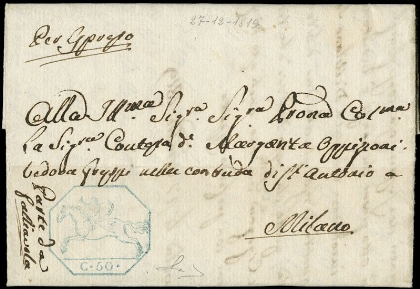 27-12-1819
Per Espresso
Alla Ill.ma Sigra. Sigra. Prona Colma.
La Sigra. Contessa Da. Margarita Oppizzoni
vedova Greppi nella contrada di St. Antonio a
Milano
Parte da
C. 50.